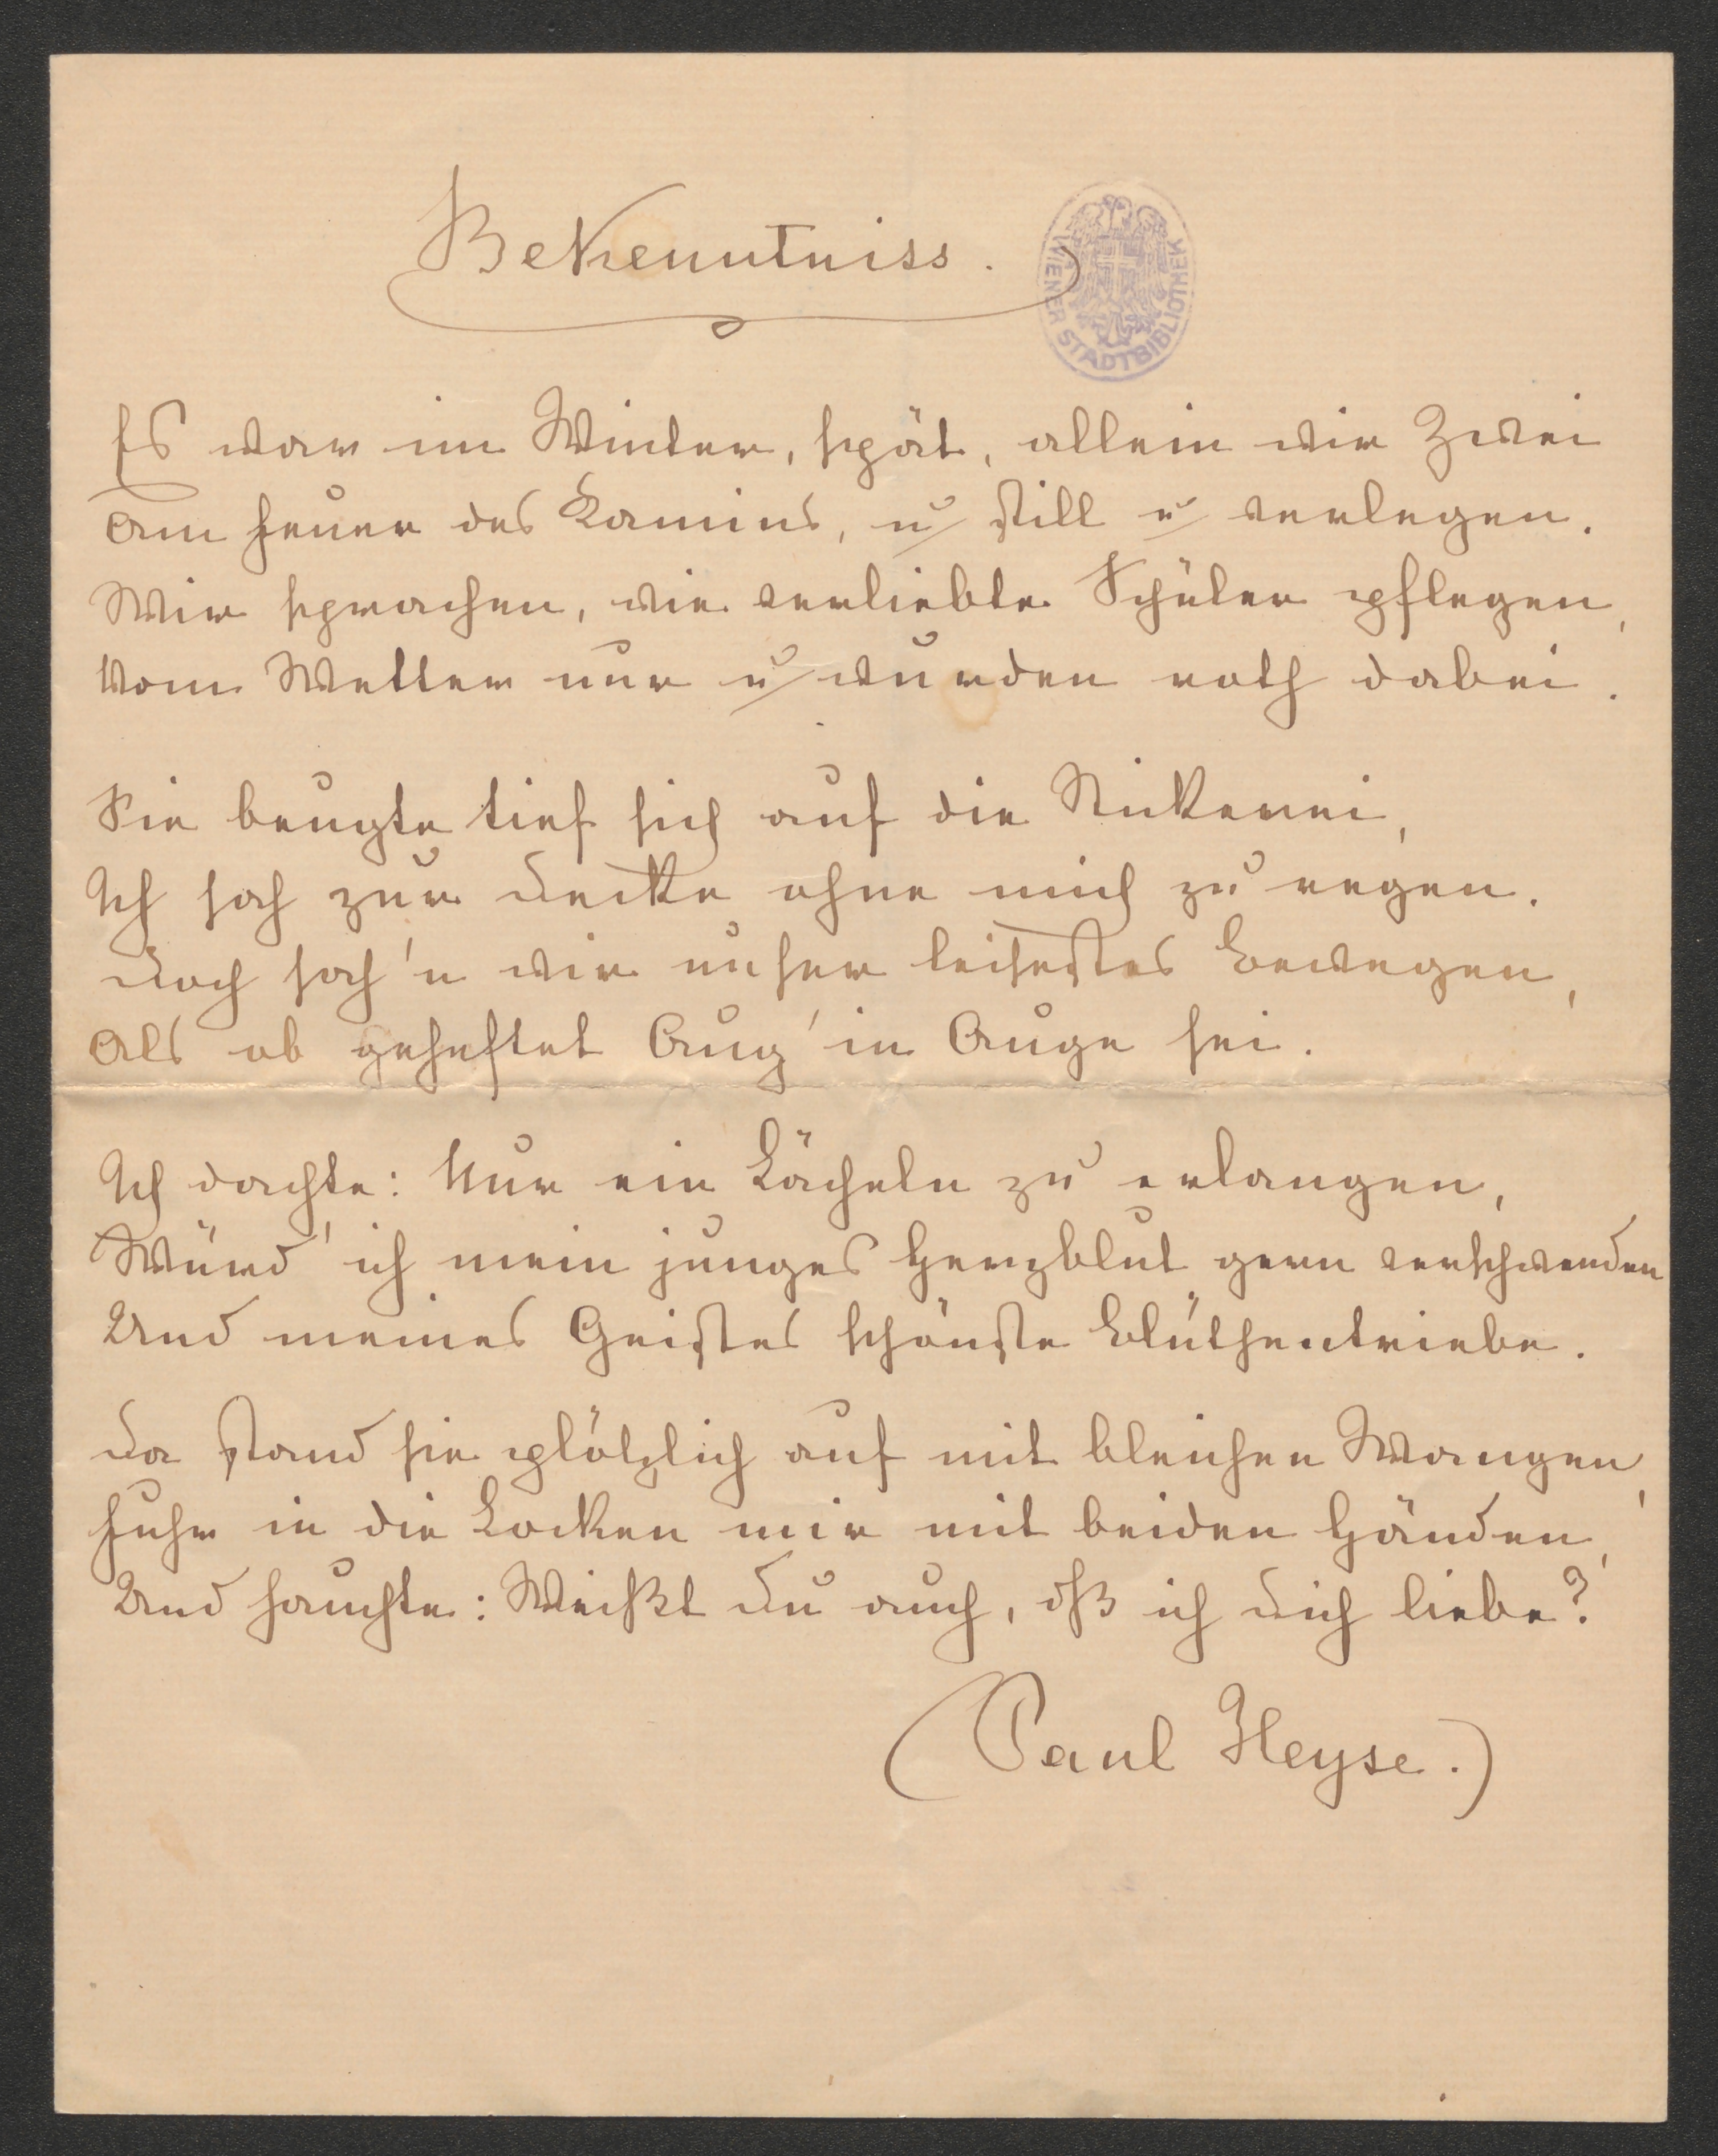 Bekenntniss.
WIENER STADTBIBLIOTHEK
Es war im Winter, spät, allein wir Zwei
Am Feuer des Kamins, u still u verlegen.
Wir sprachen, wie verliebte Schüler pflegen,
Vom Wetter nur u wurden roth dabei.
Sie beugte tief sich auf die Stickerei,
Ich sah zur Decke ohne mich zu regen.
Doch sah'n wir unser leisestes Bewegen,
Als ob geheftet Aug' in Auge sei.
Ich dachte: Nur ein Lächeln zu erlangen,
Würd' ich mein junges Herzblut gern verschwenden
Und meines Geistes schönste Blüthentriebe.
Da stand sie plötzlich auf mit bleichen Wangen,
Fuhr in die Locken mir mit beiden Händen,
Und hauchte: Weißt Du auch, dß ich Dich liebe?
(Paul Heyse.)